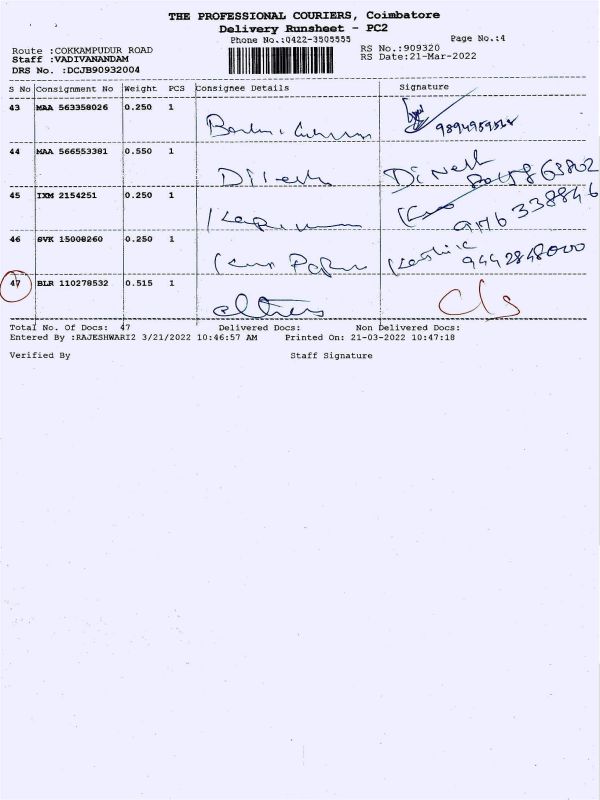 THE PROFESSIONAL COURIERS, Coimbatore
Delivery Runsheet - PC2
Phone No.:0422-3505555 Page No.:4
Route :COKKAMPUDUR ROAD RS No.:909320
Staff :VADIVANANDAM RS Date:21-Mar-2022
DRS No. :DCJB90932004
S No Consignment No Weight PCS Consignee Details Signature
43 MAA 563358026 0.250 1
44 MAA 566553381 0.550 1 Dinesh
45 IXM 2154251 0.250 1
46 SVK 15008260 0.250 1 9442848000
47 BLR 110278532 0.515 1 cls
Total No. Of Docs: 47 Delivered Docs: Non Delivered Docs:
Entered By :RAJESHWARI2 3/21/2022 10:46:57 AM Printed On: 21-03-2022 10:47:18
Verified By Staff Signature